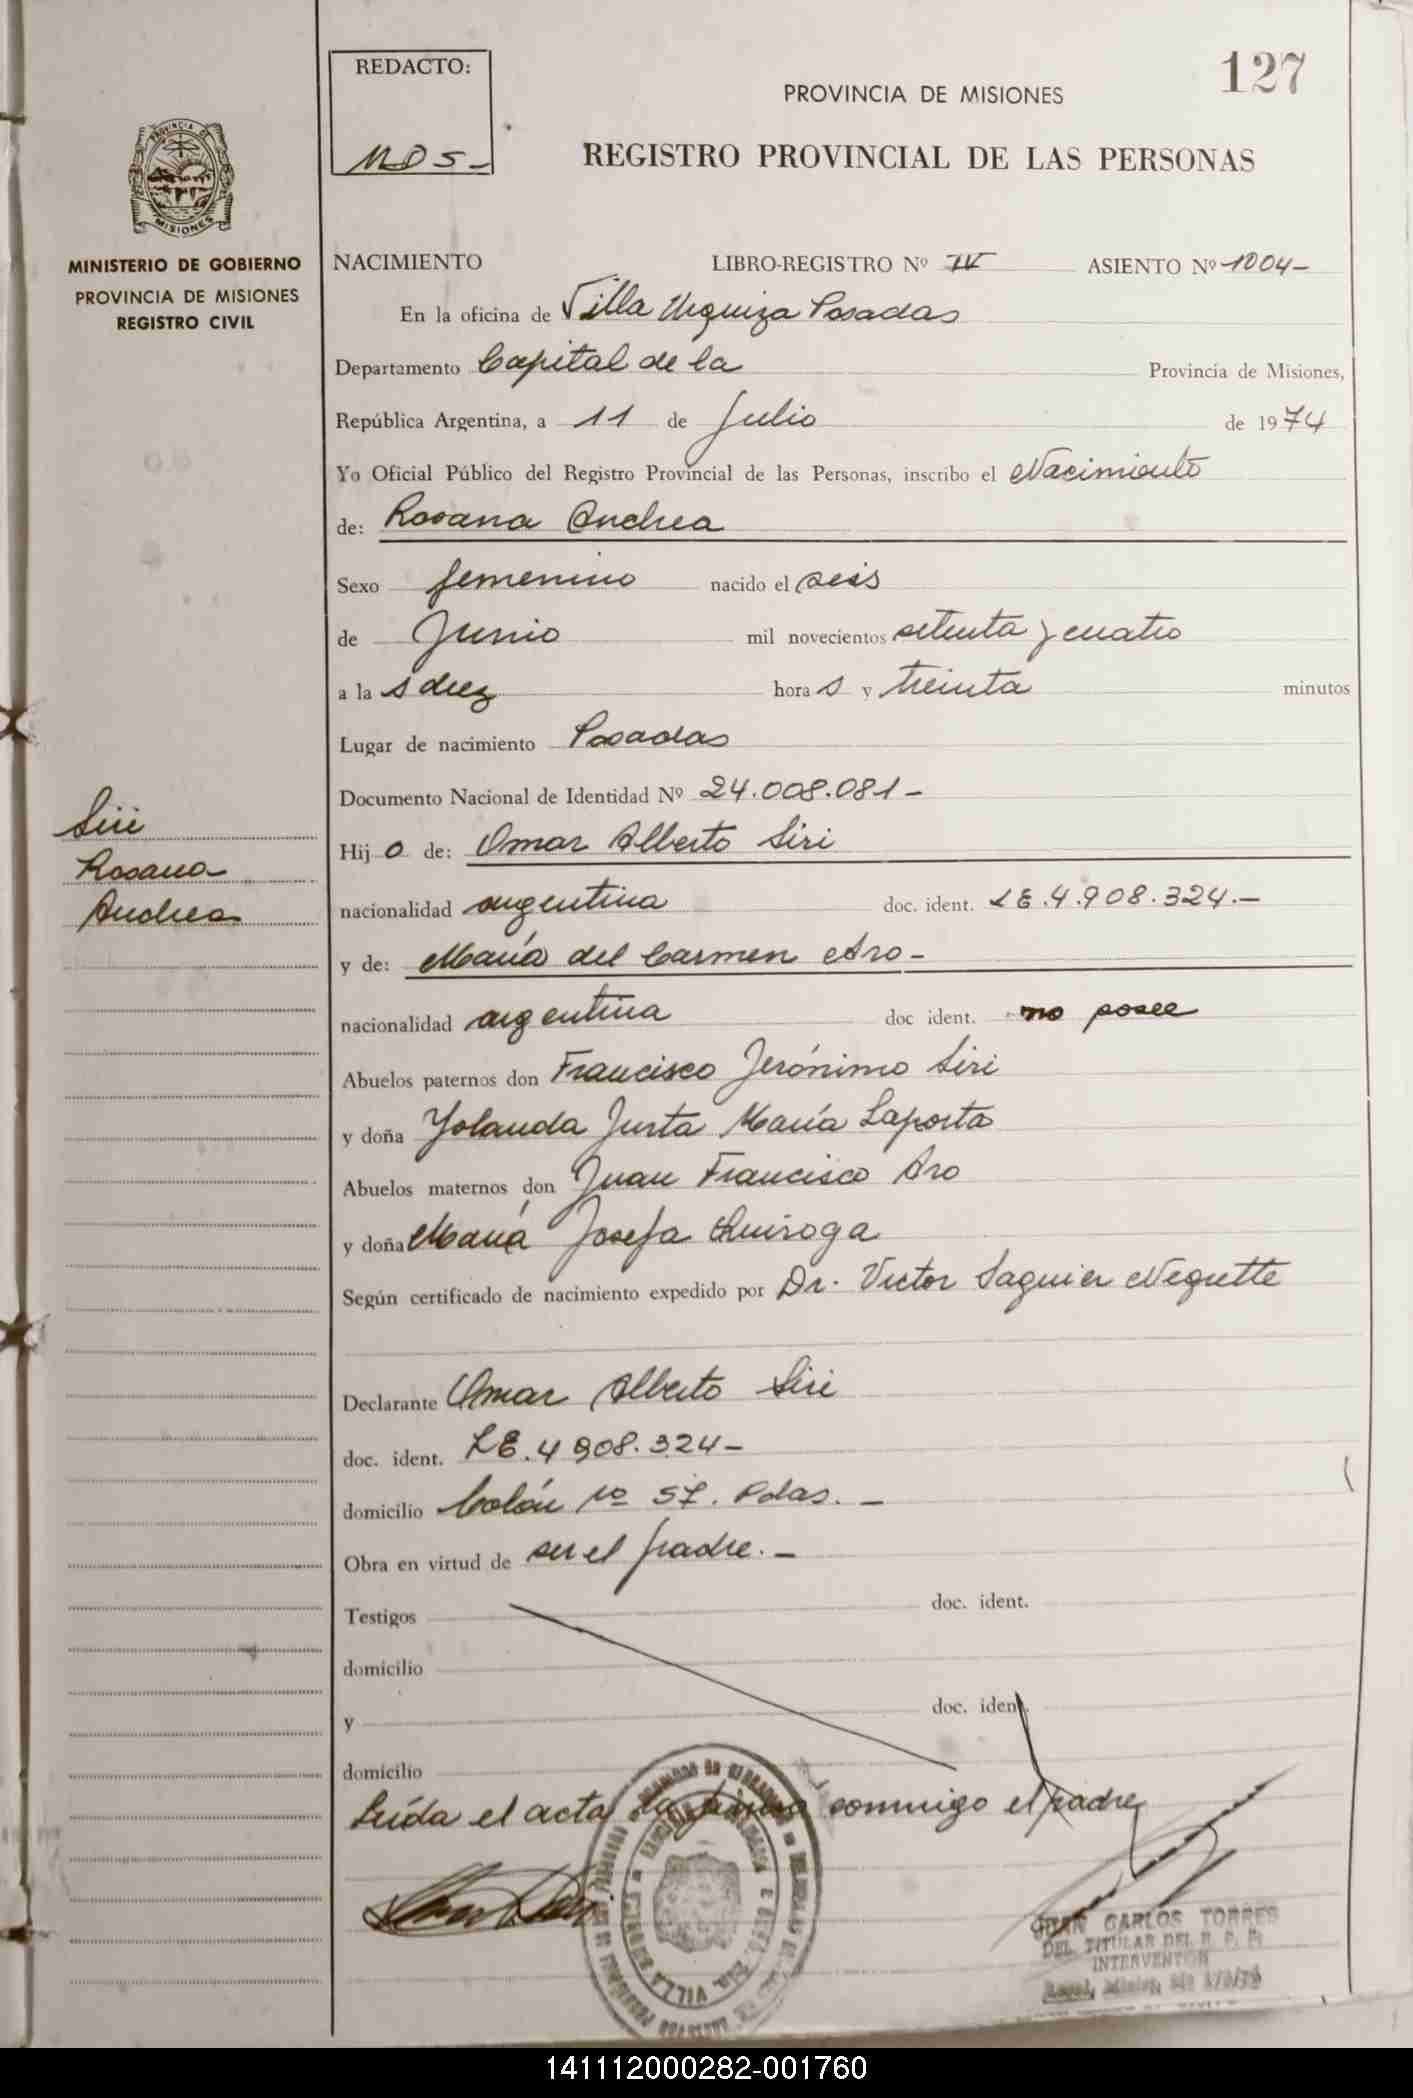 127
REDACTO:
MDS-
PROVINCIA DE MISIONES
REGISTRO PROVINCIAL DE LAS PERSONAS
PROVINCIA DE
MISIONES
MINISTERIO DE GOBIERNO
PROVINCIA DE MISIONES
REGISTRO CIVIL
NACIMIENTO LIBRO-REGISTRO Nº IV ASIENTO Nº 1004-
En la oficina de Villa Urquiza Posadas
Departamento Capital de la Provincia de Misiones,
República Argentina, a 11 de Julio de 1974
Yo Oficial Público del Registro Provincial de las Personas, inscribo el Nacimiento
de: Rosana Andrea
Sexo femenino nacido el seis
de Junio mil novecientos setenta y cuatro
a la s diez hora s y treinta minutos
Lugar de nacimiento Posadas
Documento Nacional de Identidad Nº 24.008.081-
Siri
Rosana
Andrea
Hij a de: Omar Alberto Siri
nacionalidad argentina doc. ident. LE.4.908.324.-
y de: María del Carmen Aro-
nacionalidad argentina doc ident. no posee
Abuelos paternos don Francisco Jerónimo Siri
y doña Yolanda Justa María Laporta
Abuelos maternos don Juan Francisco Aro
y doña María Josefa Quiroga
Según certificado de nacimiento expedido por Dr. Victor Saguier Negrette
Declarante Omar Alberto Siri
doc. ident. LE.4908.324-
domicilio Colón Nº 57. Pdas. -
Obra en virtud de ser el padre. -
Testigos doc. ident.
domicilio
y doc. ident.
domicilio
Leída el acta la firma conmigo el padre
VILLA
JUAN CARLOS TORRES
DEL. TITULAR DEL R. P. P.
INTERVENTOR
141112000282-001760